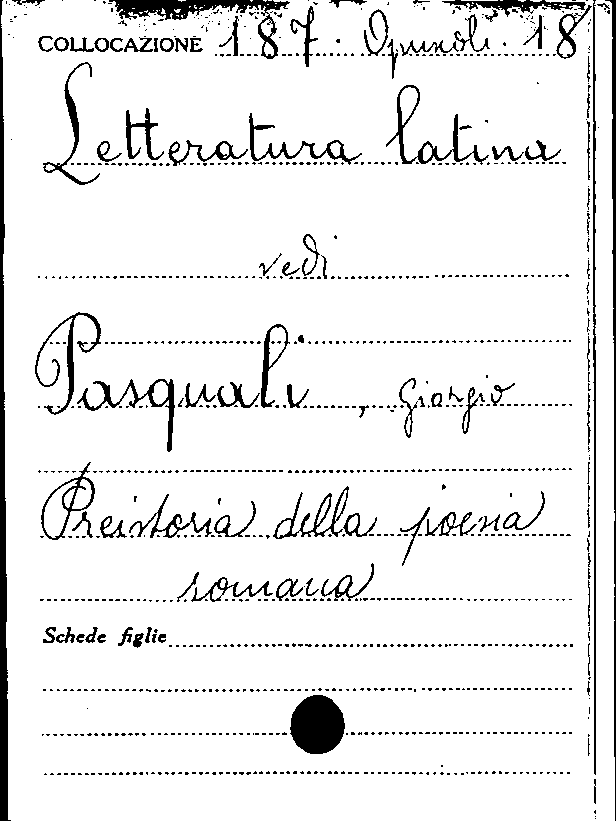 COLLOCAZIONE 187. Opuscoli. 18
Letteratura latina
vedi
Pasquali, Giorgio
Preistoria della poesia
romana
Schede figlie